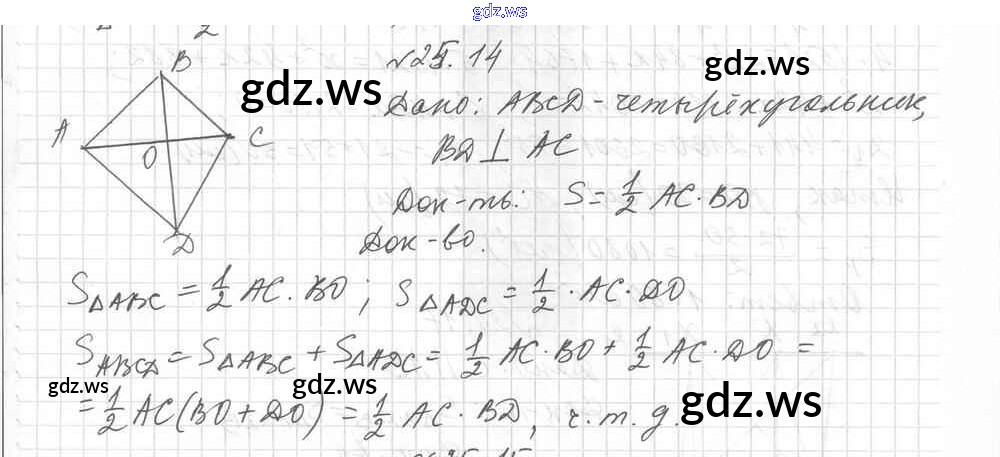 gdz.ws
2
№25.14
gdz.ws
gdz.ws
Дано: ABCD - четырёхугольник,
BD ⊥ AC
Док-ть: S = 1/2 AC · BD
Док-во.
B
A
C
O
D
S△ABC = 1/2 AC · BO ; S△ADC = 1/2 · AC · DO
SABCD = S△ABC + S△ADC = 1/2 AC · BO + 1/2 AC · DO =
gdz.ws
gdz.ws
gdz.ws
= 1/2 AC (BO + DO) = 1/2 AC · BD, ч.т.д.